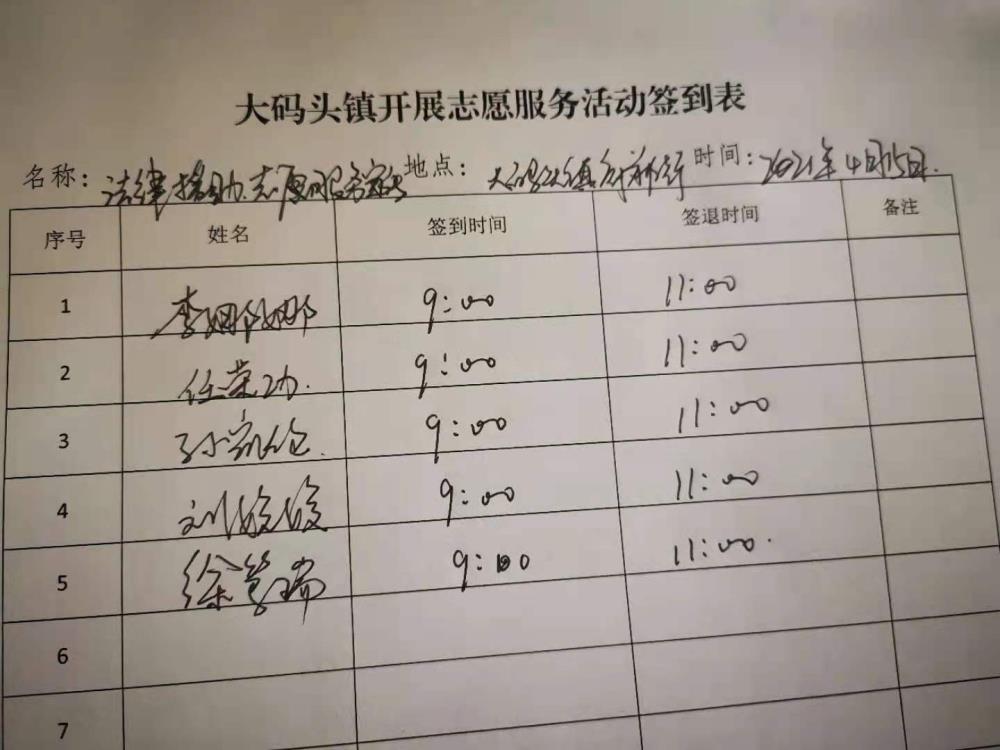 大码头镇开展志愿服务活动签到表
名称：法律援助志愿服务活动 地点：大码头镇 时间：2021年4月15日
序号 姓名 签到时间 签退时间 备注
1 李娜娜 9:00 11:00
2 任荣功 9:00 11:00
3 孙凯伦 9:00 11:00
4 刘姣姣 9:00 11:00
5 徐 瑞 9:00 11:00
6
7